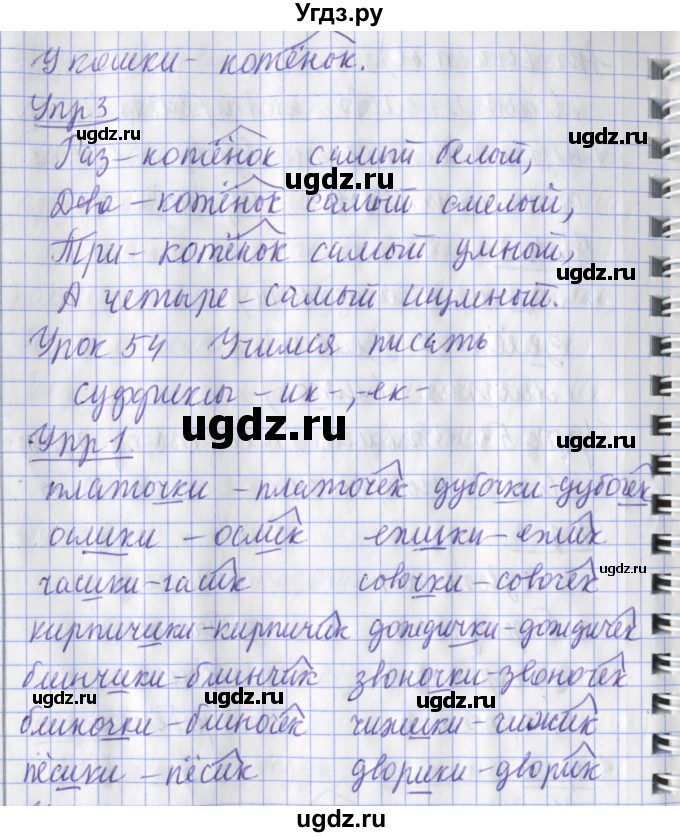 Угдз.ру
У кошки - котёнок.
Упр 3
ugdz.ru
Раз - котёнок самый белый,
ugdz.ru ugdz.ru
Два - котёнок самый смелый,
Три - котёнок самый умный,
ugdz.ru ugdz.ru
А четыре - самый шумный.
Урок 54 Учимся писать
суффиксы -ик-, -ек-
ugdz.ru ugdz.ru
Упр 1
платочки - платочек дубочки - дубочек
ослики - ослик ежики - ежик
ugdz.ru ugdz.ru ugdz.ru
часики - часик совочки - совочек
кирпичики - кирпичик дождички - дождичек
блинчики - блинчик звоночки - звоночек
ugdz.ru ugdz.ru ugdz.ru
блиночки - блиночек чижики - чижик
пёсики - пёсик дворики - дворик
ugdz.ru
ugdz.ru